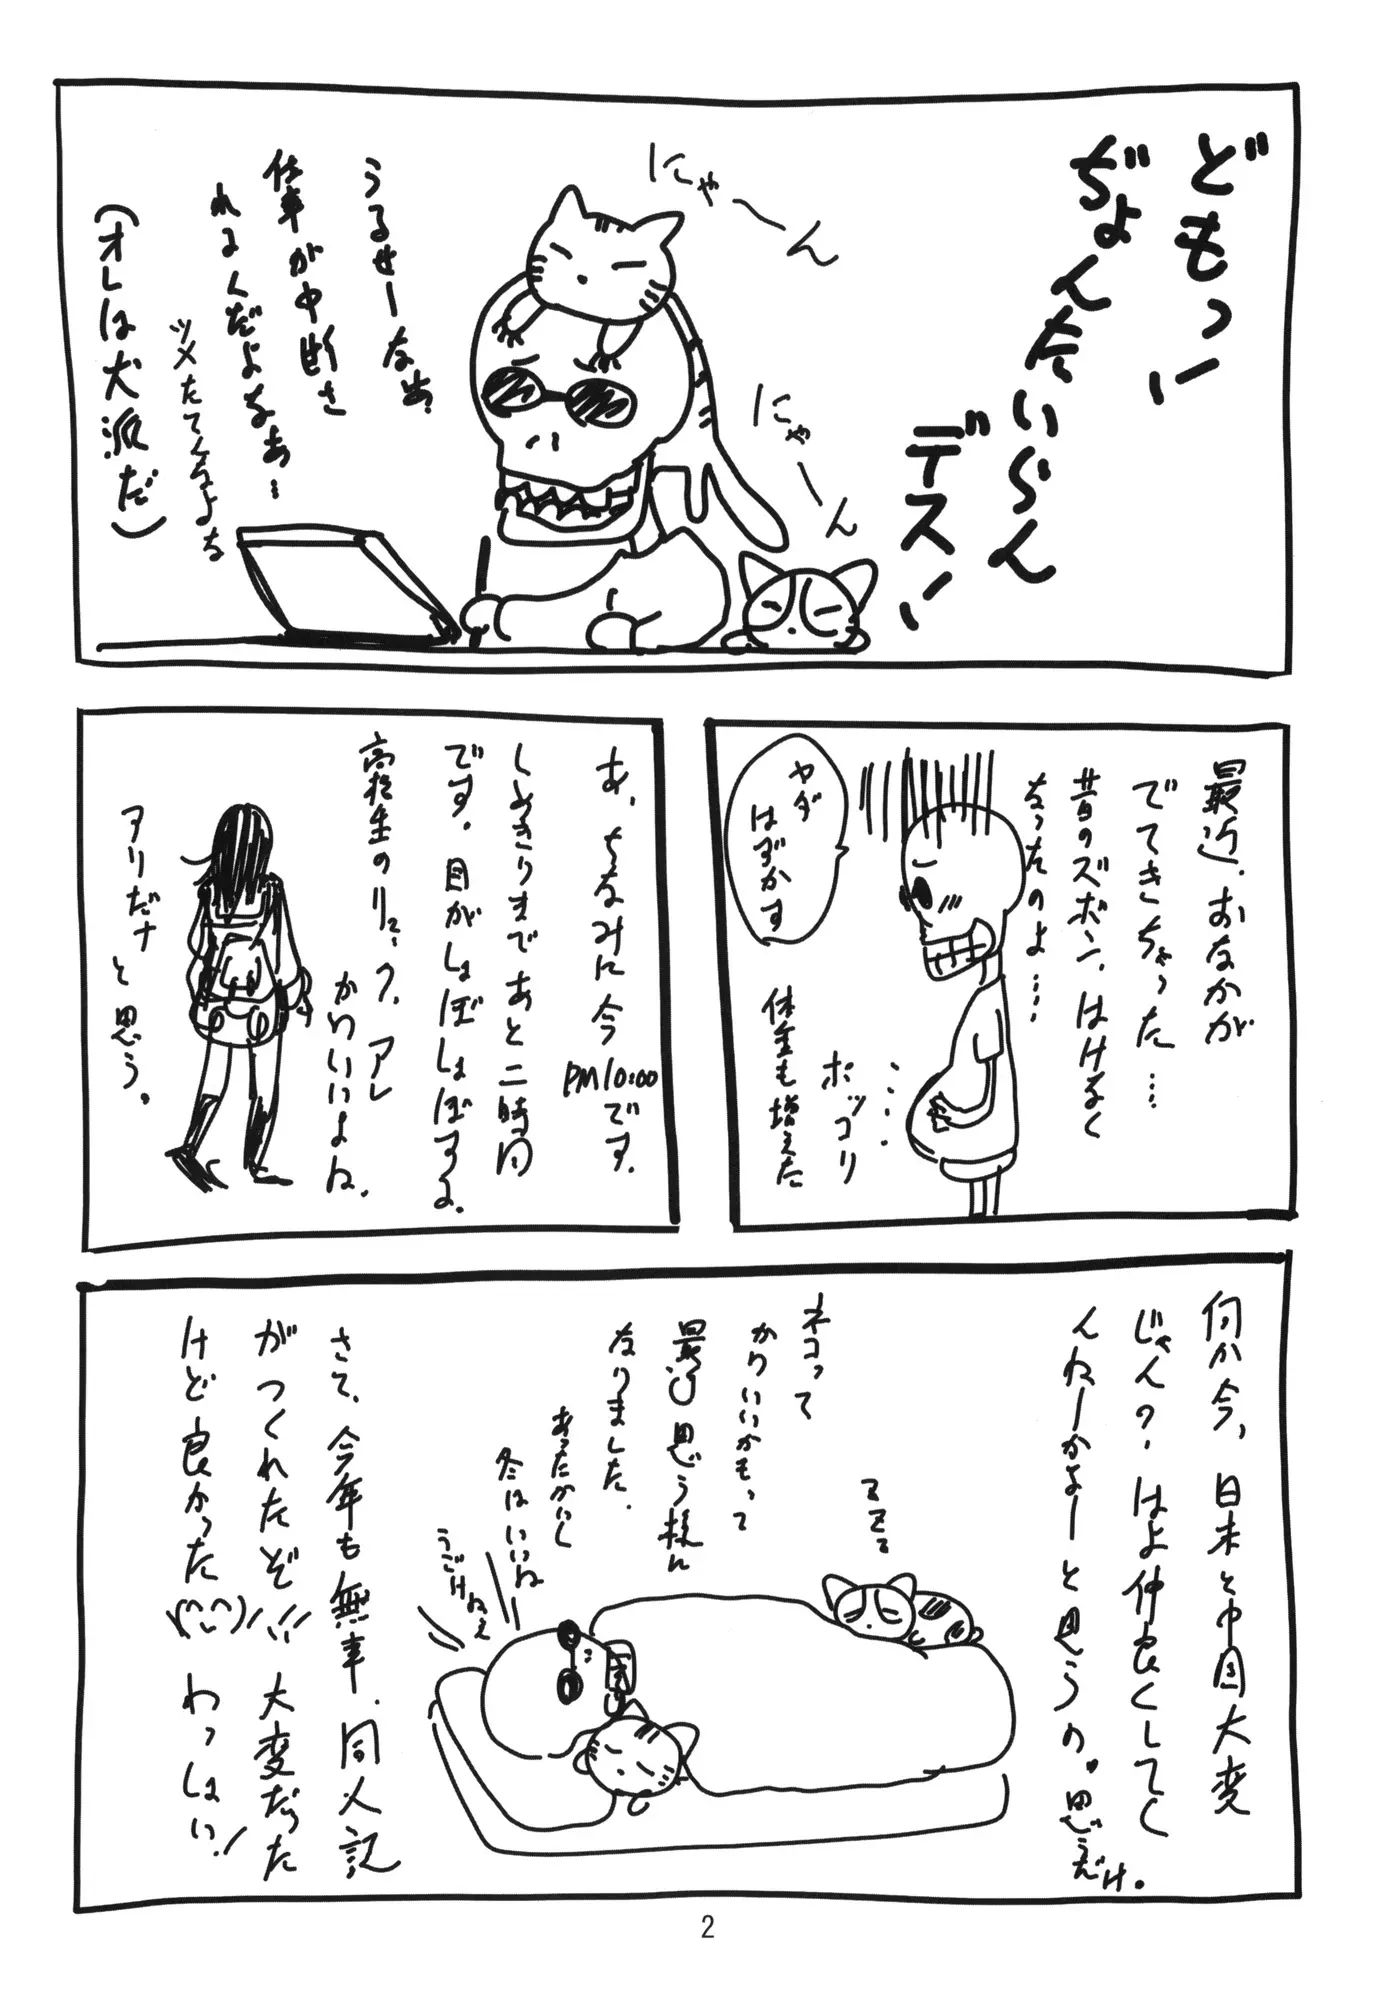 どもっ!!
ぢょんたいらん
デス!!
にゃ〜ん
にゃ〜ん
うるせーなぁ、
仕事が中断さ
れるんだよなぁ…
ツメたてんなよな
(オレは犬派だ)
最近、おなかが
でてきちゃった…
昔のズボン、はけなく
なったのよ……
ヤダ
はずかす
ポッコリ
体重も増えた
あ、ちなみに今
PM10:00です。
しめきりまであと二時間
です。目がしょぼしょぼするよ。
高校生のリュック、アレ
かわいいよね。
アリだナ
と思う。
何か今、日本と中国大変
じゃん?はよ仲良くしてく
んねーかなーと思うの。思うだけ。
ネコって
かわいいかもって
最近思う様に
なりました。
あったかいし
冬はいいね
うごけねぇ
さて、今年も無事、同人記
がつくれたぞ!!大変だった
けど良かった\(^^)/わっしょい!
2